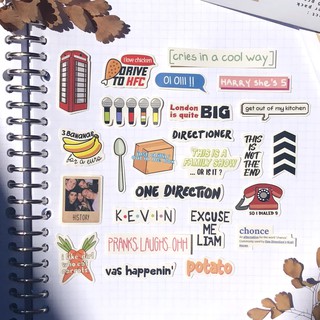 [cries in a cool way]
i love chicken
DRIVE
TO HFC
Ol Olll ll
HARRY she's 5
London
is quite BIG
get out of my kitchen
3 BANANAS
for a euro
DIRECTIONER
THIS IS A
FAMILY SHOW
... OR IS IT?
THIS
IS
NOT
THE
END
ONE DIRECTION
SO I DIALED 9
HISTORY
K•E•V•I•N
EXCUSE
ME
LIAM
PRANKS LAUGHS OHH!
chonce
i like girls
who eat
carrots
vas happenin'
potato